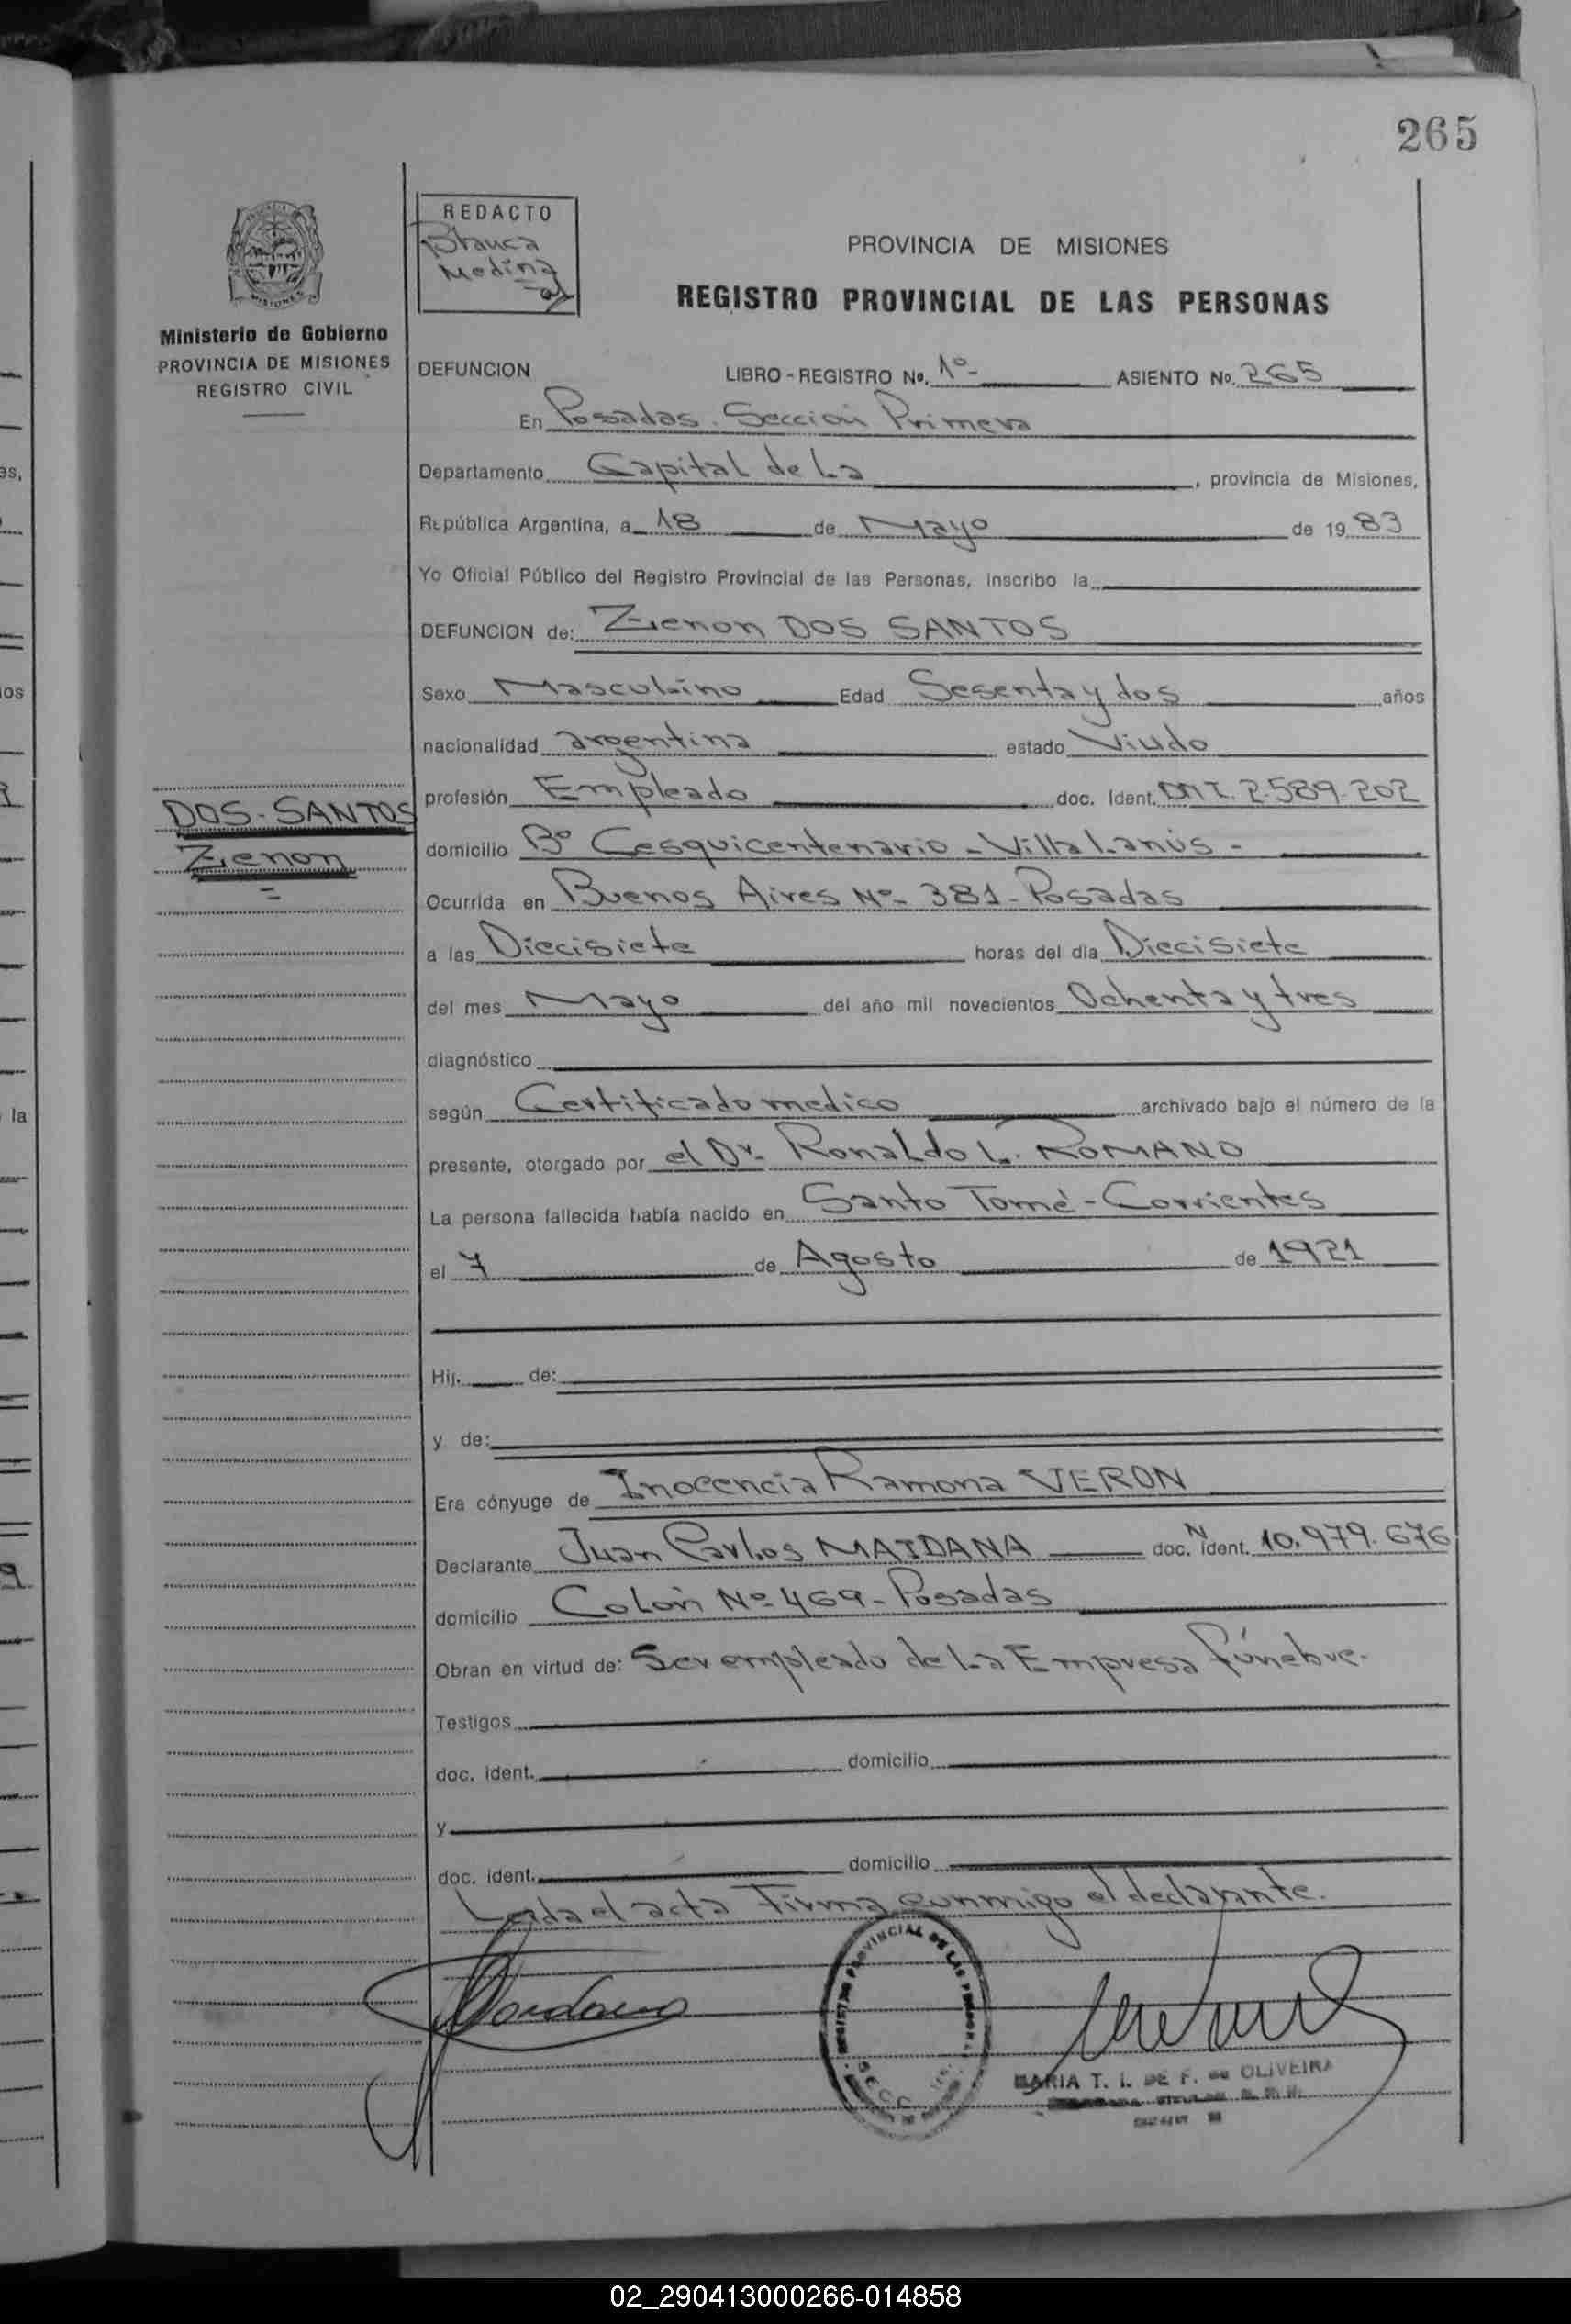 265
REDACTO
Blanca
Medina
PROVINCIA DE MISIONES
REGISTRO PROVINCIAL DE LAS PERSONAS
MISIONES
Ministerio de Gobierno
PROVINCIA DE MISIONES
REGISTRO CIVIL
DEFUNCION LIBRO - REGISTRO No. 1º - ASIENTO No. 265
En Posadas. Sección Primera
Departamento Capital de La, provincia de Misiones,
República Argentina, a 18 de Mayo de 1983
Yo Oficial Público del Registro Provincial de las Personas, inscribo la
DEFUNCION de: Zienon DOS SANTOS
Sexo Masculino Edad Sesenta y dos años
nacionalidad argentina estado Viudo
profesión Empleado doc. Ident. DNI. 2.589.202
DOS-SANTOS
Zienon
domicilio Bº Cesquicentenario - Villa Lanús -
Ocurrida en Buenos Aires Nº - 381 - Posadas
a las Diecisiete horas del día Diecisiete
del mes Mayo del año mil novecientos Ochenta y tres
diagnóstico
según Certificado medico archivado bajo el número de la
presente, otorgado por el Dr. Ronaldo L. ROMANO
La persona fallecida había nacido en Santo Tomé - Corrientes
el 7 de Agosto de 1921
Hij. de:
y de:
Era cónyuge de Inocencia Ramona VERON
Declarante Juan Carlos MAIDANA doc. N ident. 10.979.676
domicilio Colón Nº 469 - Posadas
Obran en virtud de: Ser empleado de La Empresa fúnebre.
Testigos
doc. ident. domicilio
y
doc. ident. domicilio
Leida el acta Firma conmigo el declarante.
REGISTRO PROVINCIAL DE LAS PERSONAS
MARIA T. I. DE F. de OLIVEIRA
02_290413000266-014858